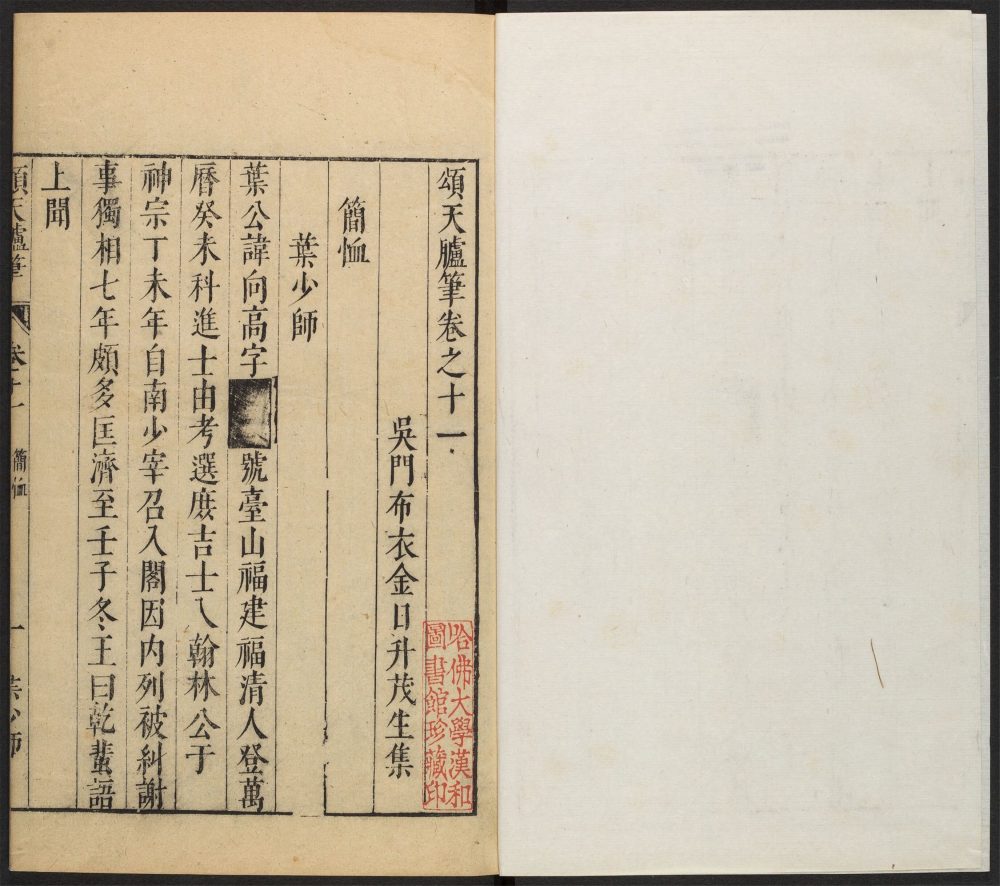 頌天臚筆卷之十一
吳門布衣金日升茂生集
簡恤
葉少師
葉公諱向高字
號臺山福建福清人登萬
曆癸未科進士由考選庶吉士入翰林公于
神宗丁未年自南少宰召入閣因內列被糾謝
事獨相七年頗多匡濟至壬子冬王曰乾蜚語
上聞
頌天臚筆
卷十一
簡恤
一
葉少師
哈佛大學漢和
圖書館珍藏印